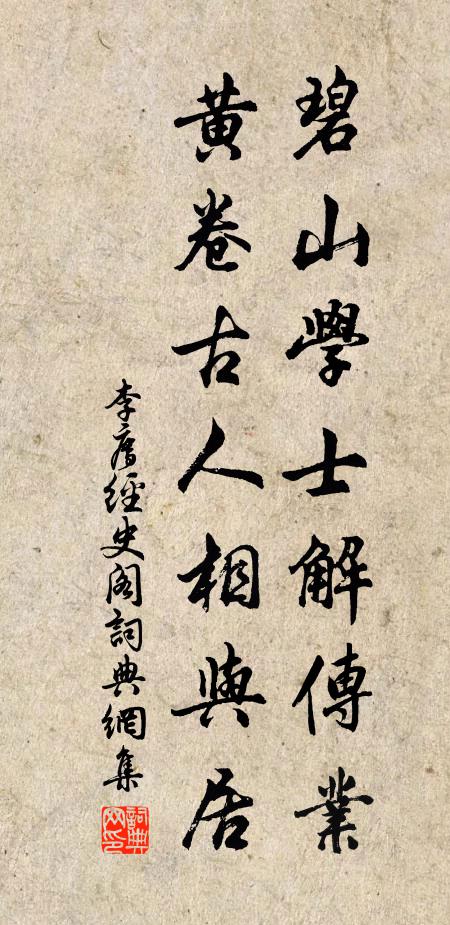 碧山學士解傳業
黃卷古人相與居
李廌經史閣詞典網集
詞典網印